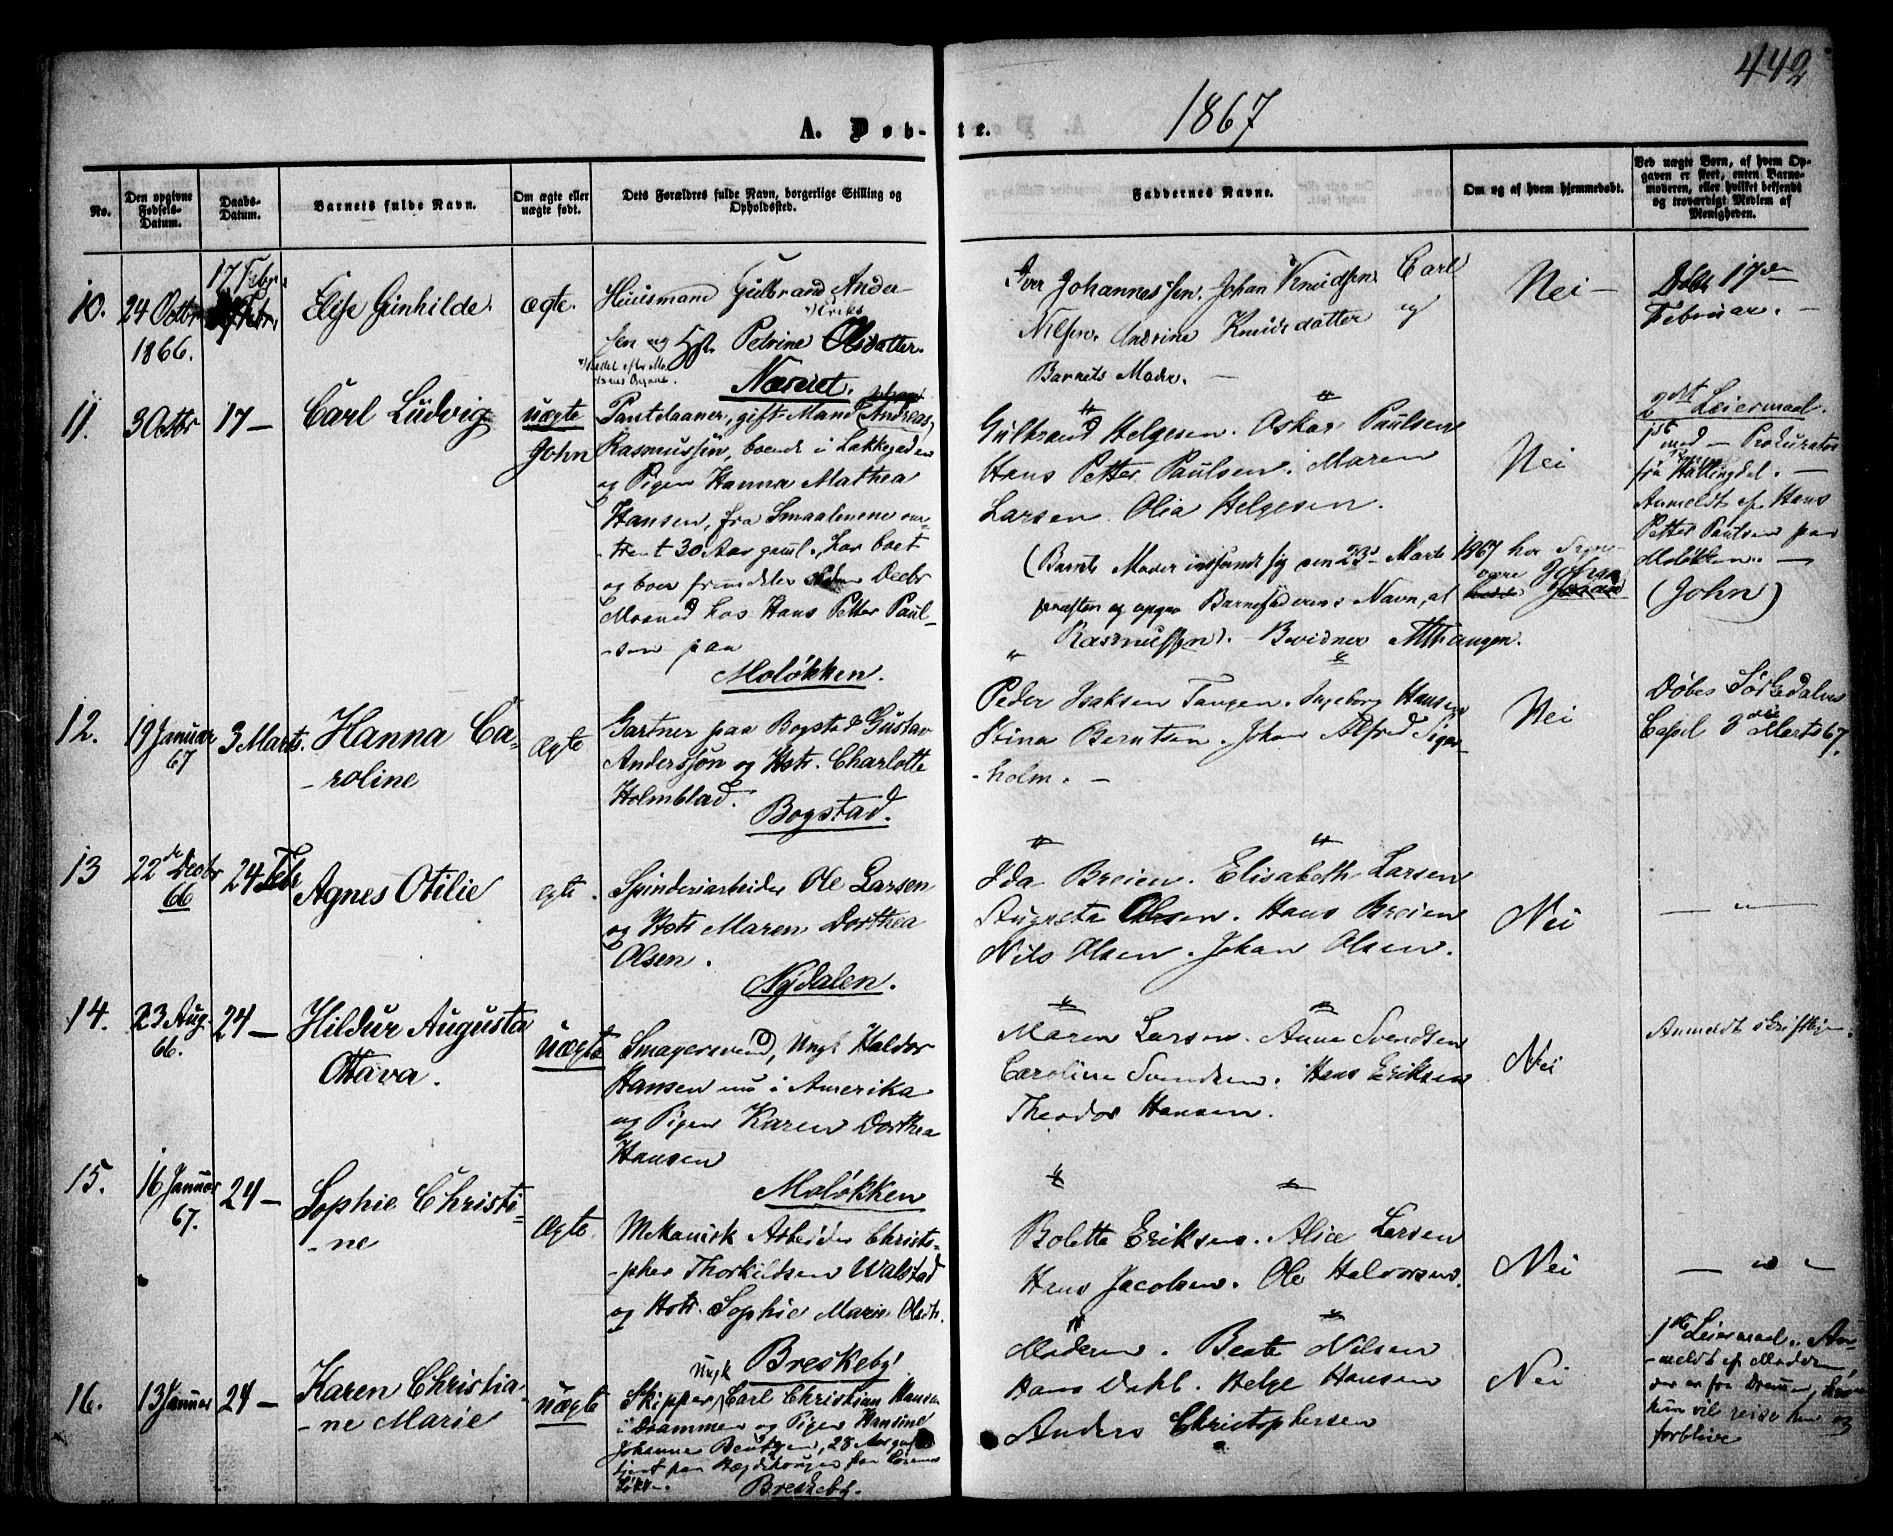 442
1867
A. Døb-te.
No.
Den opgivne Fødsels-Datum.
Daabs-Datum.
Barnets fulde Navn.
Om ægte eller uægte født.
Dets Forældres fulde Navn, borgerlige Stilling og Opholdssted.
Faddernes Navne.
Om og af hvem hjemmedøbt.
Ved uægte Børn, af hvem Opgaven er skeet, enten Barnemoderen, eller hvilket bekjendt og troværdigt Medlem af Menigheden.
10.
24 Octbr
1866.
17 Febr.
Elise Gunhilde.
ægte.
Huusmand Gulbrand Ander-
sen og Hst. Petrine Olsdatter.
Næsset.
Iver Johannessen. Johan Knudsen. Carl
Nilsen. Andrine Knudsdatter og
Barnets Moder. —
Nei —
Døbt 17de
Februar. —
11.
3 Octbr
17 —
Carl Ludvig
uægte
John
Pantelaaner, gift Mand (Andreas)
Rasmussen, boende i Lakkegaden
og Pigen Hanna Mathea
Hansen, fra Smaalenene om-
-trent 30 Aar gaml., har boet
og boer fremdeles Decbr
Maaned hos Hans Petter Paul-
-sen paa
Moløkken.
Gulbrand Helgesen. Oskar Paulsen
Hans Petter Paulsen. Maren
Larsen. Olia Helgesen.
(Barnets Moder indfandt sig den 23d Marts 1867 hos
og opgav Barnefaderens Navn, at være John
Rasmussen). Bevidner
Nei
2det Leiermaal.
1ste med — Prokurator
fra Hallingdal. —
Anmeldt af Hans
Petter Paulsen paa
Moløkken. —
(John)
12.
19 Januar
67
3 Marts.
Hanna Ca-
-roline
Ægte
Gartner paa Bogstad Gustav
Anderssøn og Hstr. Charlotte
Holmblad.
Bogstad.
Peder Isaksen Tangen. Ingeborg Hansen
Stina Berntsen. Johan Alfred Siger-
-holm. —
Nei
Døbes Sørkedalens
Capel 3die Marts 67.
13
22de Decbr
66
24 Febr
Agnes Otilie
ægte.
Spinderiarbeider Ole Larsen
og Hstr Maren Dorthea
Olsen.
Nydalen.
Ida Breien. Elisabeth Larsen
Augusta Olsen. Hans Breien
Nils Olsen. Johan Olsen.
Nei
— " —
14.
23 Aug.
66.
24 —
Hildur Augusta
Ottava.
uægte
Smagersvend, Ungk Haldor
Hansen nu i Amerika
og Pigen Karen Dorthea
Hansen
Moløkken
Maren Larsen. Anne Svendsen
Caroline Svendsen. Hans Eriksen
Theodor Hansen.
Nei
Anmeldt skriftlig.
15.
16 Januar
67.
24 —
Sophie Christi-
-ne
Ægte
Mekanisk Arbeider Christo-
-pher Thorkildsen Walstad
og Hstr. Sophie Marie Olsdtr.
Breskeby
Bolette Eriksen. Alice Larsen
Hans Jacobsen. Ole Halvorsen.
Nei
— " —
16.
13 Januar
24 —
Karen Christia-
-ne Marie
uægte
Ungk
Skipper Carl Christian Hansen
i Drammen og Pigen Hansine
Johanne Bentzen, 28 Aar gl
tjent paa Hægdehougen paa
Løkk.
Breskeby.
Moderen. Beate Nilsen
Hans Dahl. Helge Hansen
Anders Christophersen
Nei
1ste Leiermaal. An-
-meldt af Moderen,
der er fra Drammen,
hun vil reise hen og
forblive